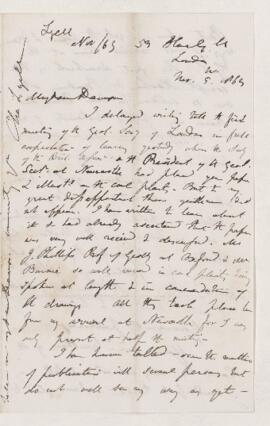 Lyell
Nov/63 53 Harley St
London
Nov. 5, 1863
My dear Dawson
I delayed writing till the first
meeting of the Geol. Socy of London in full
expectation of learning yesterday when the Secy
of the Brit. Assn or the President of the Geol.
Sect. at Newcastle had placed your paper
& illustns on the coal plants. But to my
great disappointment these gentlemen did
not appear. I have written to learn about
it & had already ascertained that the paper
was very well received & discussed.
J Phillips Prof of Geology at Oxford &
so well versed in coal plants
spoken at length & in commendation of
the drawings. All this took place before
my arrival at Newcastle for I was
only present at half the meeting.
I have talked over the matter
of publication with several persons, but
do not well see my way as yet—